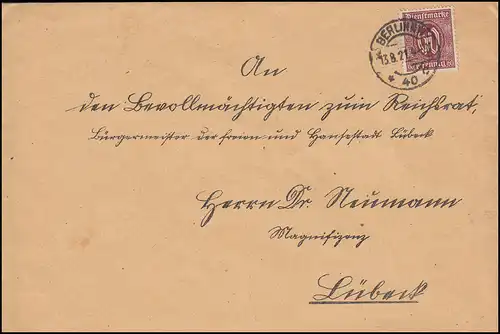 Dienstmarke
BERLIN
13.8.21
* 40
An
den Bevollmächtigten zum Reichsrat,
Bürgermeister der freien und Hansestadt Lübeck
Herrn Dr. Neumann
Magnifizenz
Lübeck